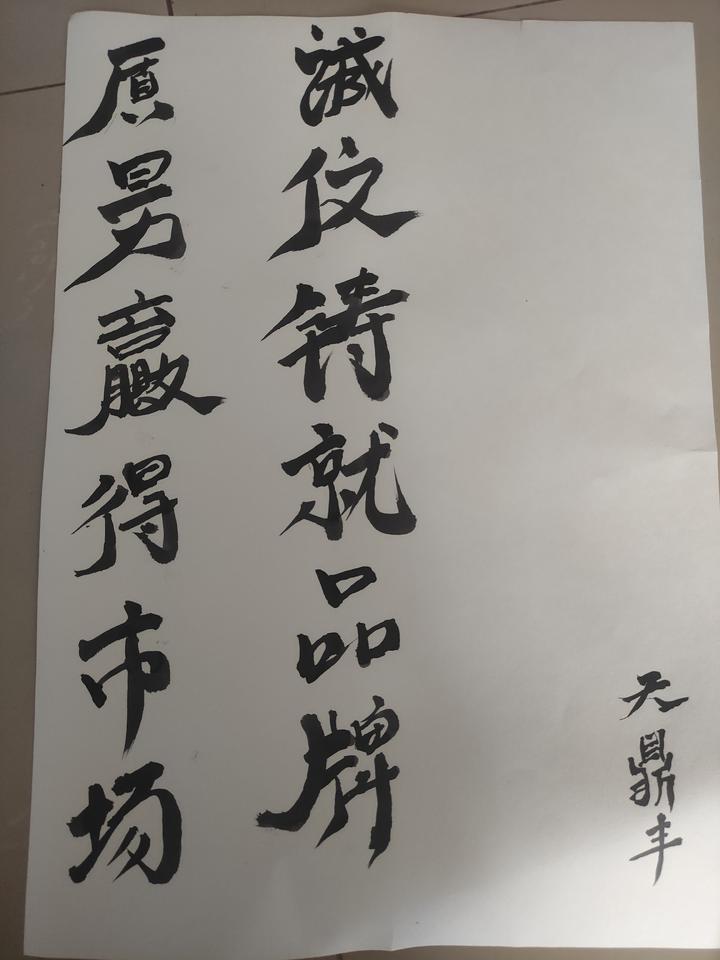 天鼎丰
誠信铸就品牌
质量赢得市场